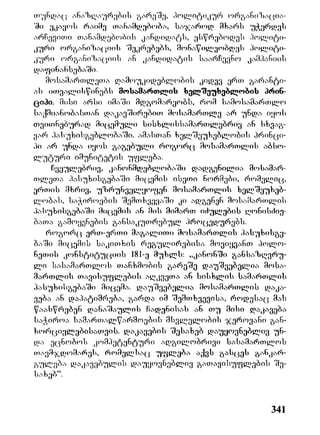 თუნდაც ანაზღაურების გარეშე, პოლიტიკურ ორგანიზაცია-
ში ეკავოს რაიმე თანამდებობა, საჯაროდ მხარს უჭერდეს
არჩევითი თანამდებობის კანდიდატს, ესწრებოდეს პოლიტი-
კური ორგანიზაციის შეკრებებს, მონაწილეობდეს პოლიტი-
კური ორგანიზაციის ან კანდიდატის საარჩევნო კამპანიის
დაფინანსებაში.
მოსამართლეთა დამოუკიდებლობის კიდევ ერთ გარანტი-
ას ითვალისწინებს მოსამართლის ხელშეუხებლობის პრინ-
ციპი. მისი არსი იმაში მდგომარეობს, რომ სამოსამართლო
საქმიანობასთან დაკავშირებით მოსამართლე არ უნდა იყოს
თვითნებურად მიცემული სისხლისსამართლებრივ ან სხვაგ-
ვარ პასუხისგებლობაში. ამასთან ხელშეუხებლობის პრინცი-
პი არ უნდა იყოს გაგებული როგორც მოსამართლის აბსო-
ლუტური იმუნიტეტის უფლება.
ჩვეულებრივ, კანონმდებლობაში დადგენილია მოსამარ-
თლეთა პასუხისგებაში მიცემის ისეთი ნორმები, რომელიც,
ერთის მხრივ, უზრუნველყოფენ მოსამართლის ხელშეუხებ-
ლობას, საჭიროების შემთხვევაში კი ადგენენ მოსამართლის
პასუხისგებაში მიცემის ან მის მიმართ იძულების ღონისძიე-
ბათა გამოყენების განსაკუთრებულ პროცედურებს.
როგორც ერთ-ერთი მაგალითი მოსამართლის პასუხისგე-
ბაში მიცემის საკითხის რეგულირებისა მოვიყვანთ პოლო-
ნეთის კონსტიტუციის 181-ე მუხლს: „კანონში განსაზღვრუ-
ლი სასამართლოს თანხმობის გარეშე დაუშვებელია მოსა-
მართლის თავისუფლების აღკვეთა ან სისხლის სამართლის
პასუხისგებაში მიცემა. დაუშვებელია მოსამართლის დაკა-
ვება ან დაპატიმრება, გარდა იმ შემთხვევისა, როდესაც მას
წაასწრებენ დანაშაულის ჩადენისას ან თუ მისი დაკავება
საჭიროა სამართალწარმოების მსვლელობის ჯეროვანი გან-
ხორციელებისათვის. დაკავების შესახებ დაუყოვნებლივ უნ-
და ეცნობოს კომპეტენტური ადგილობრივი სასამართლოს
თავმჯდომარეს, რომელსაც უფლება აქვს გასცეს განკარ-
გულება დაკავებულის დაუყოვნებლივ გათავისუფლების შე-
სახებ".
341